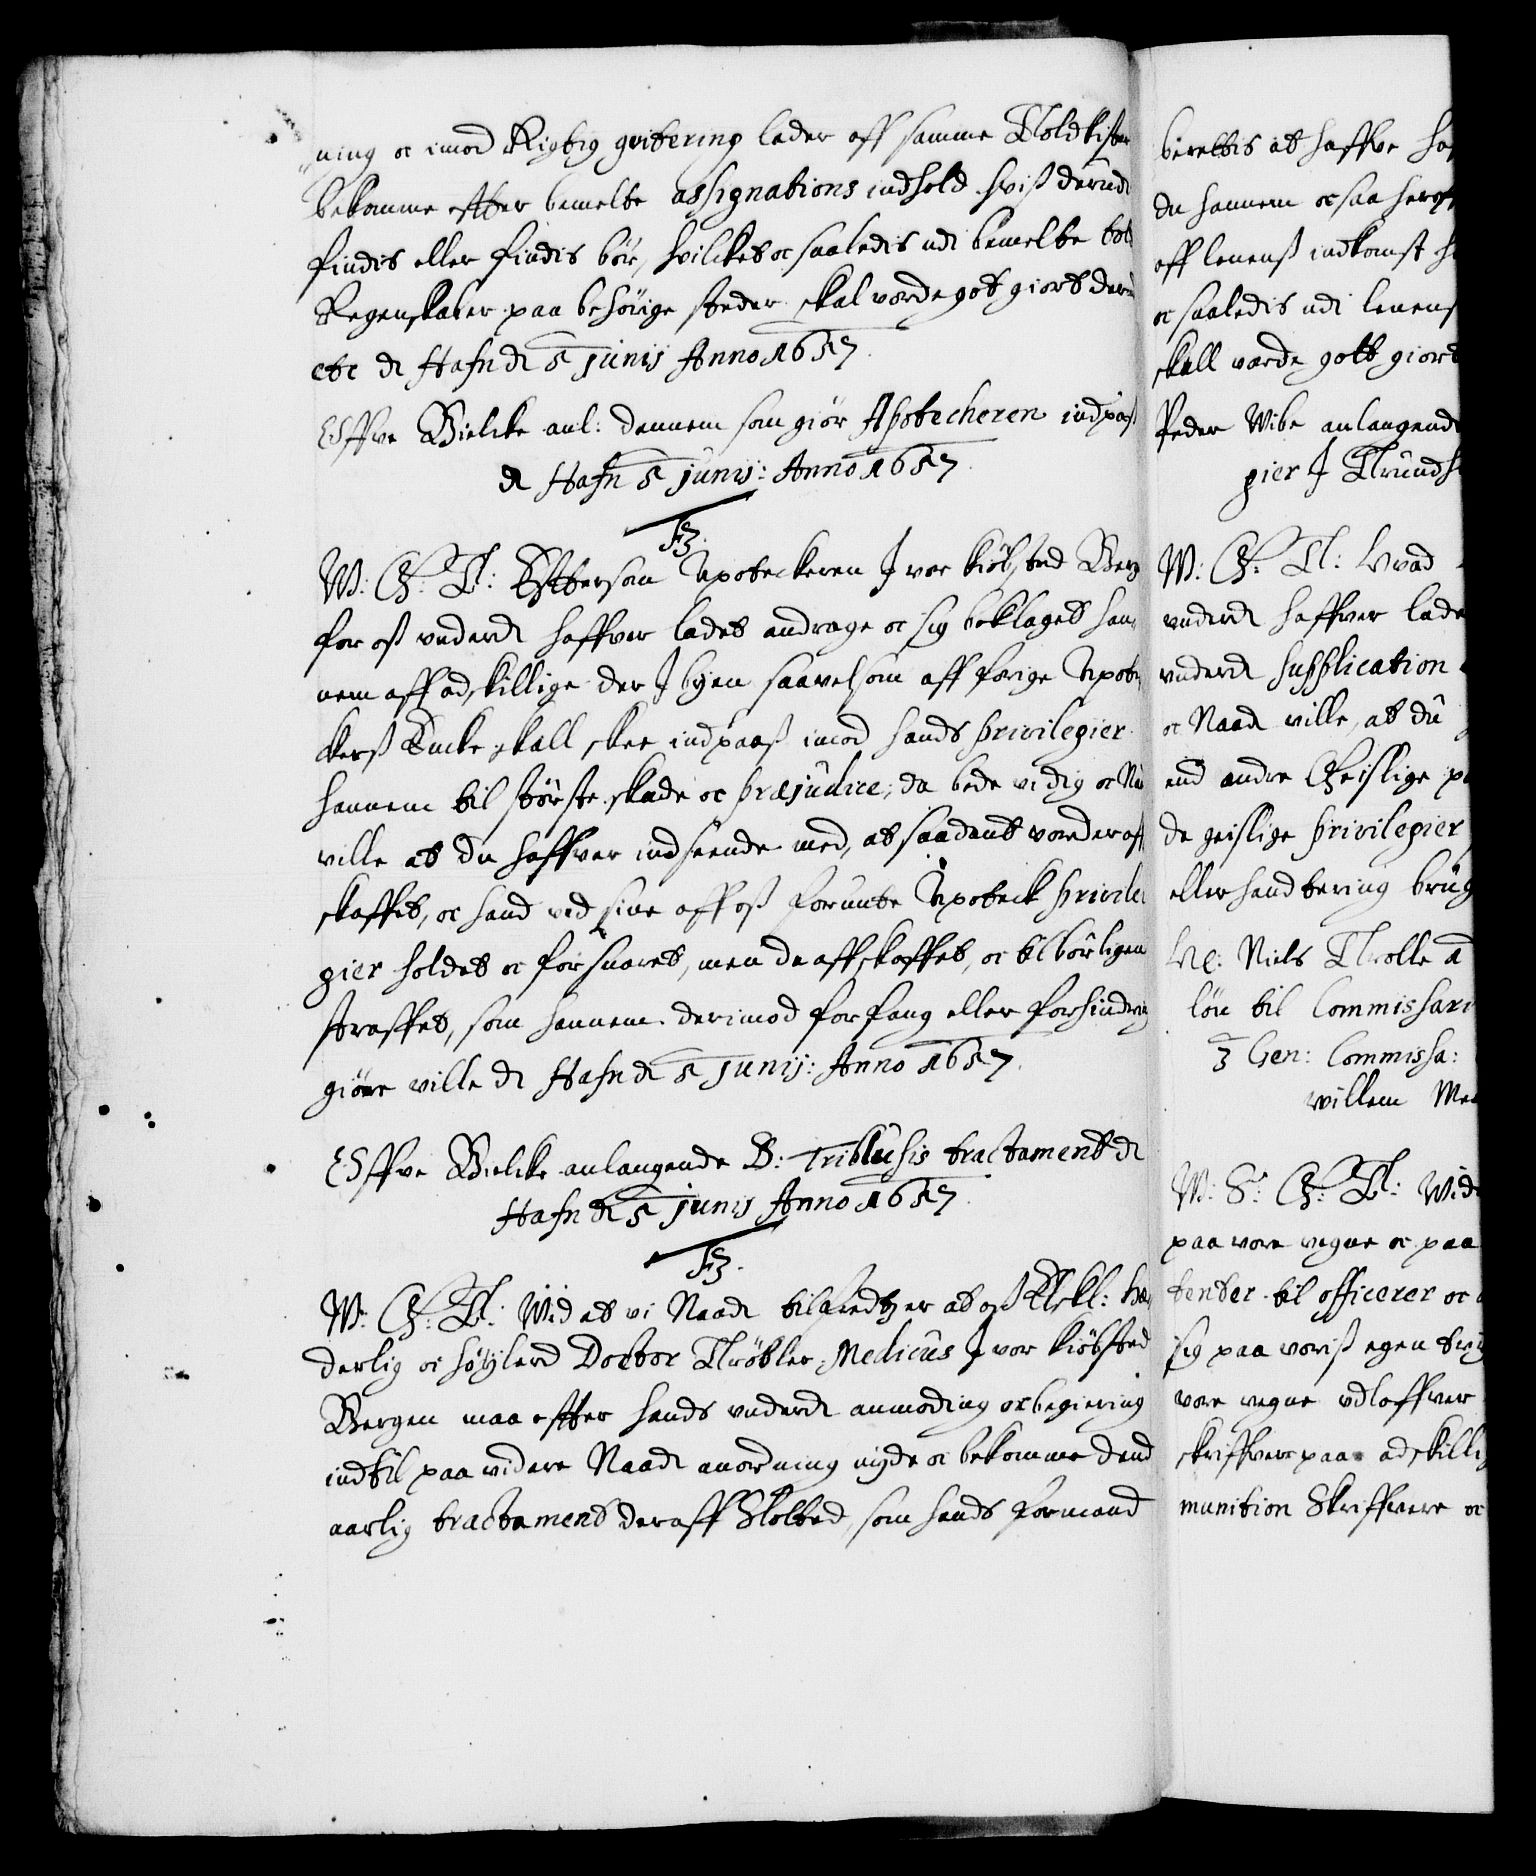 ning oc imod Rigtig qvitering lader aff samme Toldkister
bekomme efter bemelte assignations indhold hviß derudi
findis eller findis bör, hvilcket oc saaledis udi bemelte told
Regenskaber paa behörige steder skal vorde got giort
etc Hafn d 5 Junij Anno 1657.
Offve Bielcke anl: dennem som giör Apotecheren indpaß
Hafn 5 junij: Anno 1657.
F3.
W: G: T: Efftersom Apoteckeren I vor kiöbsted Berg
for oß underd haffver ladet andrage oc sig beklaget han
nem aff adskillige der I byen saavelsom aff forige Apote
kerß Encke skall skee indpaaß imod hands privilegier
hannem til störste skade oc præjudice, da bede vi dig oc Na
ville at du haffver indseende med, at saadant vorder aff
skaffet, oc hand ved sine aff oß forunte Apoteck privile
gier holdet oc forsvaret, men de affskaffet, oc tilbörligen
straffet, som hannem derimod forfang eller forhindring
giöre ville Hafn d 5 Junij: Anno 1657.
Offve Bielcke anlangende D: tractament
Hafn d 5 junij Anno 1657.
F3.
W: G: T: Wid at vi Naad tilfredtz er at oß Elskl: hæ
derlig oc höylerd Doctor Medicus I vor kiöbsted
Bergen maa effter hands underd anmoding oc begiering
indtil paa videre Naad anordning nyde oc bekomme dend
aarlig tractament deraff Slotted, som hands formand
berettis at haffve
du hannem oc saa
aff lenenß indkomst
oc saaledis udi lenens
skall vorde gott giort
Peder Wibe anlangend
gier I Trundh
W: G: T: Hvad
underd haffver lade
underd supplication
oc Naad ville, at du
end andre Geislige
de geislige privilegier
eller handtering brug
Niels Trolle
lön til Commissari
3 Gen: Commissa:
willem
W: S: G: T: Wid
paa vore vegne oc paa
tenter til officerer oc
sig paa voriß egen
vore vegne udloffver
skriffver paa adskilli
munition Skriffvere oc